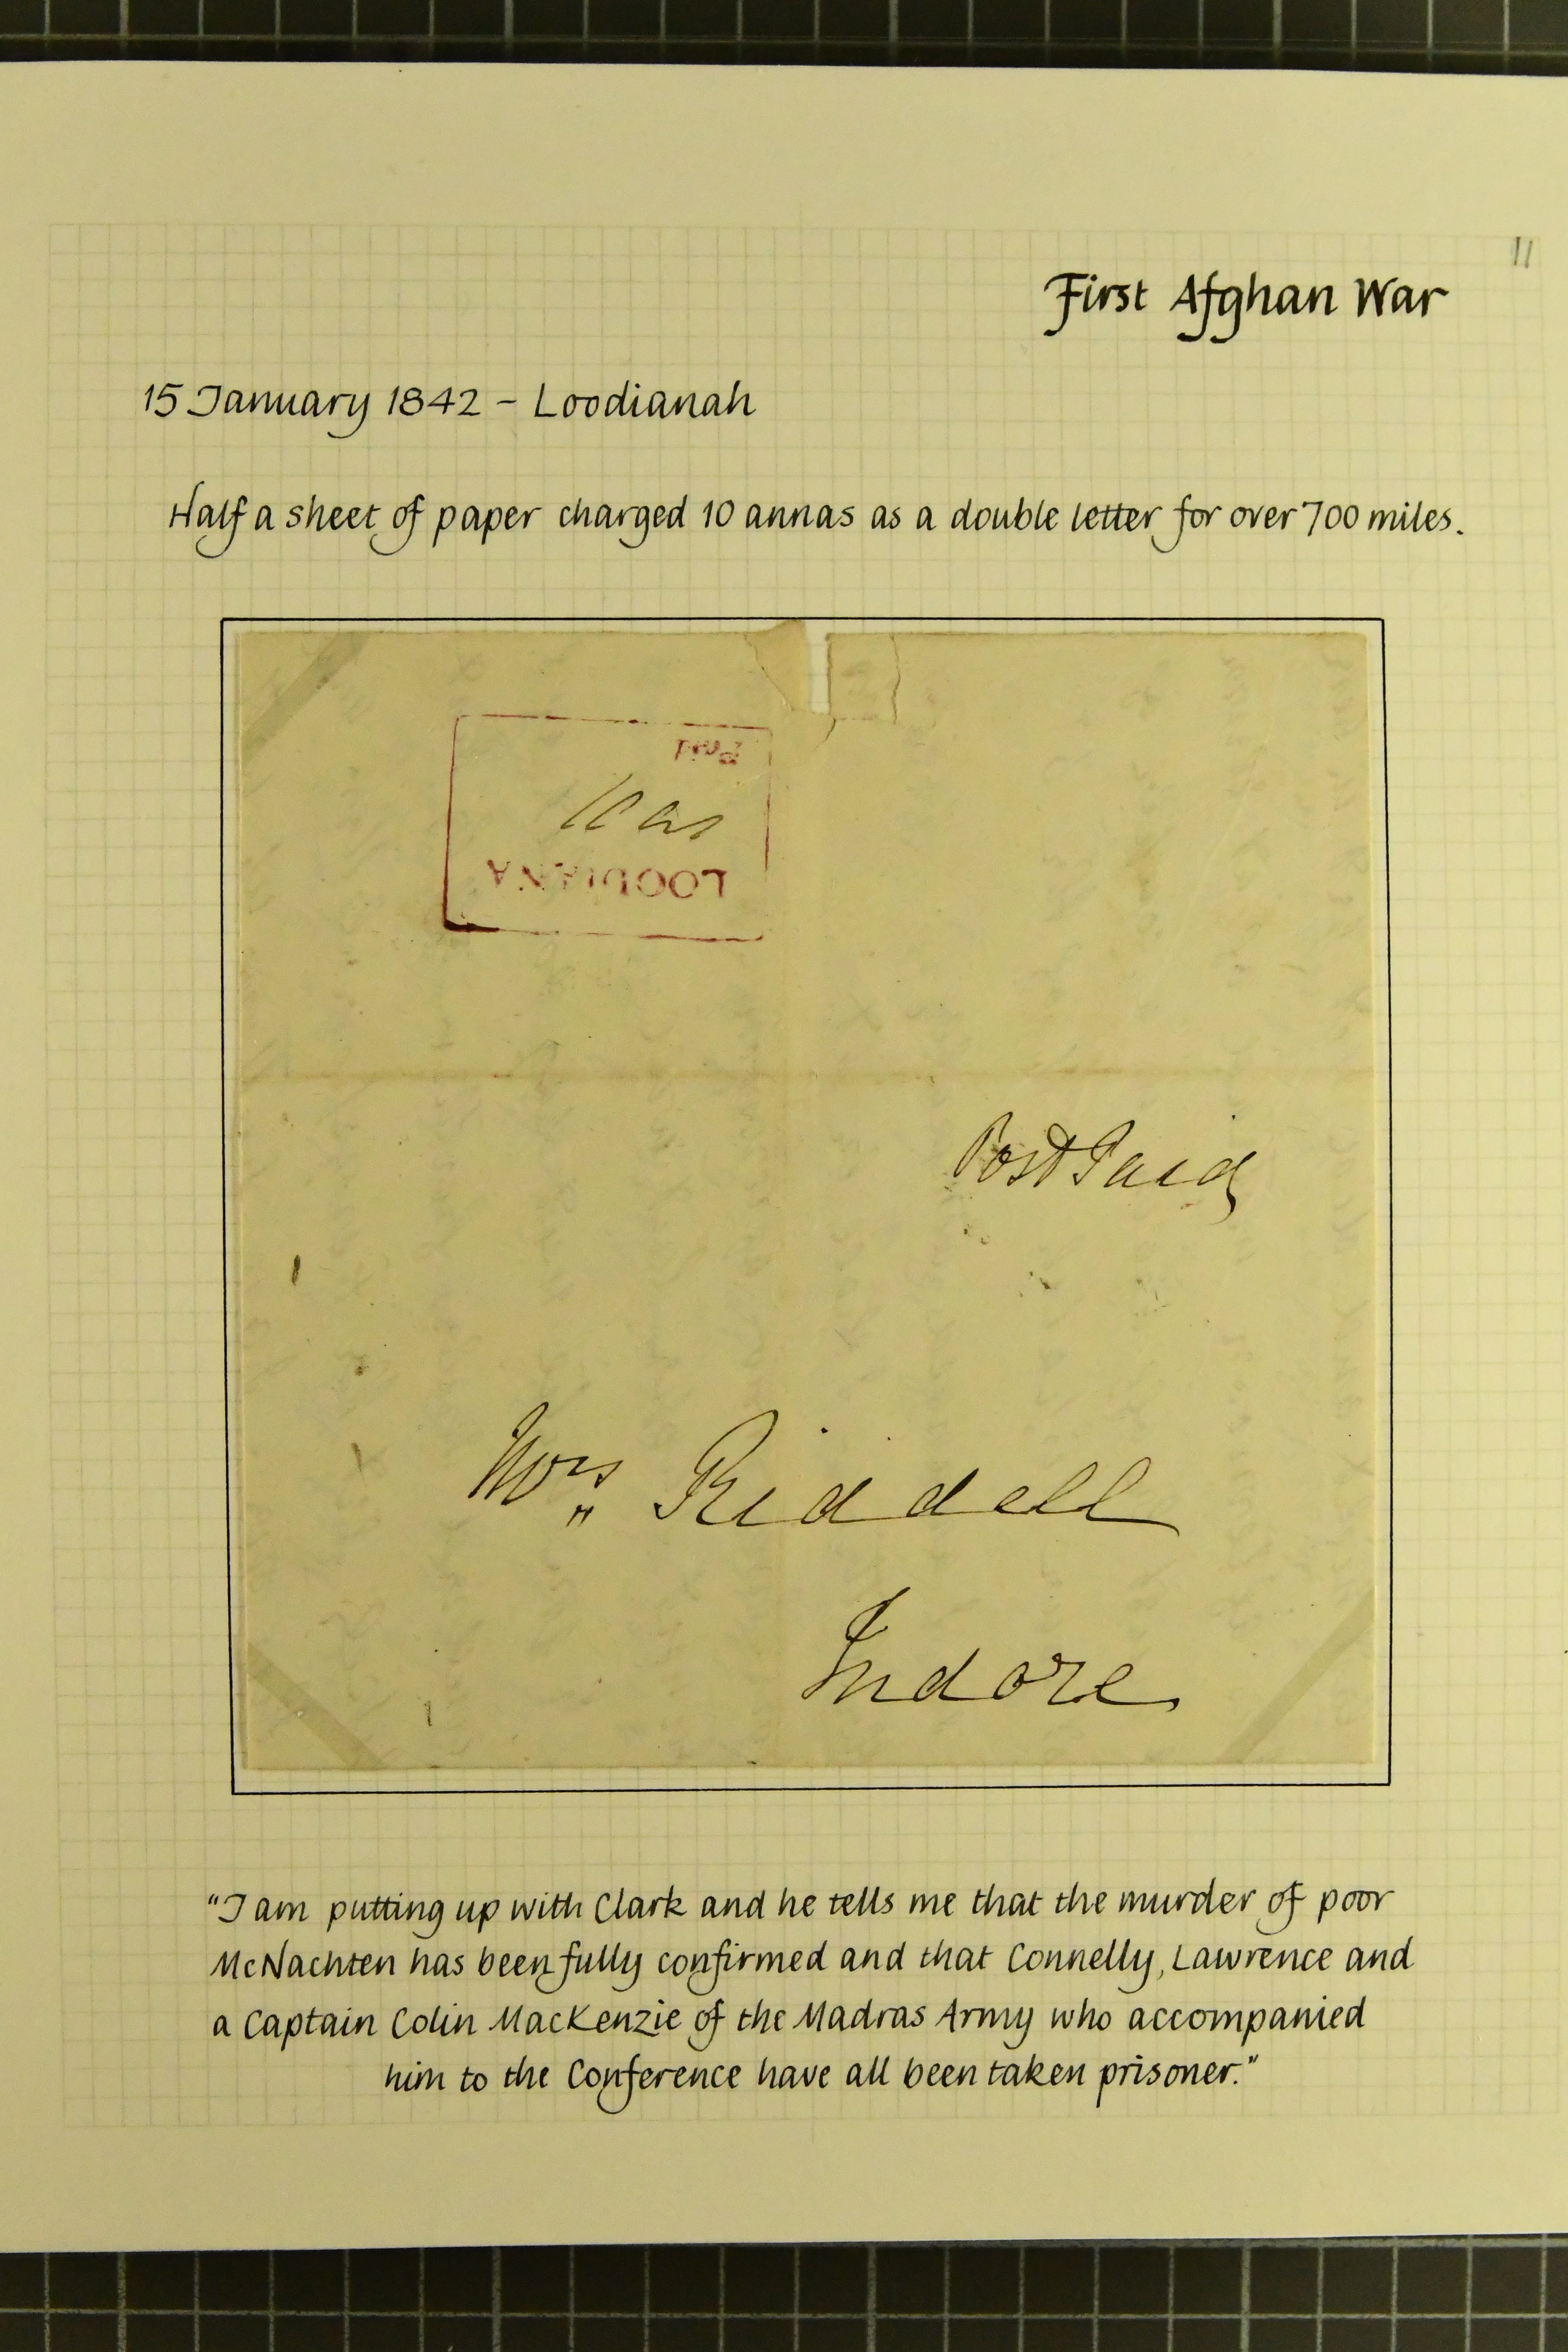 11
First Afghan War
15 January 1842 – Loodianah
Half a sheet of paper charged 10 annas as a double letter for over 700 miles.
Paid
10 as
LOODIANA
Post Paid
Mrs Riddell
Indore
"I am putting up with Clark and he tells me that the murder of poor
McNachten has been fully confirmed and that Connelly, Lawrence and
a Captain Colin MacKenzie of the Madras Army who accompanied
him to the Conference have all been taken prisoner."